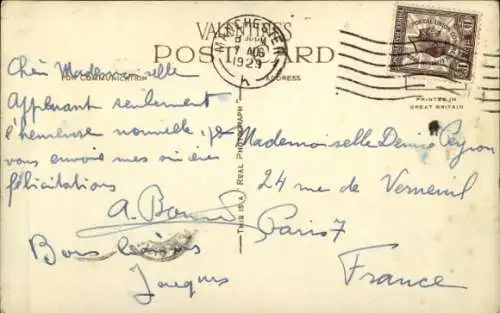 VALENTINES
POST CARD
FOR COMMUNICATION
ADDRESS
MANCHESTER
7 AUG
1929
PRINTED IN
GREAT BRITAIN
THIS IS A REAL PHOTOGRAPH
Chère Mademoiselle
Apprenant seulement
l'heureuse nouvelle, je
vous envoie mes sincères
félicitations
Bons baisers
Jacques
Mademoiselle Denise Peyron
24 rue de Verneuil
Paris 7
France